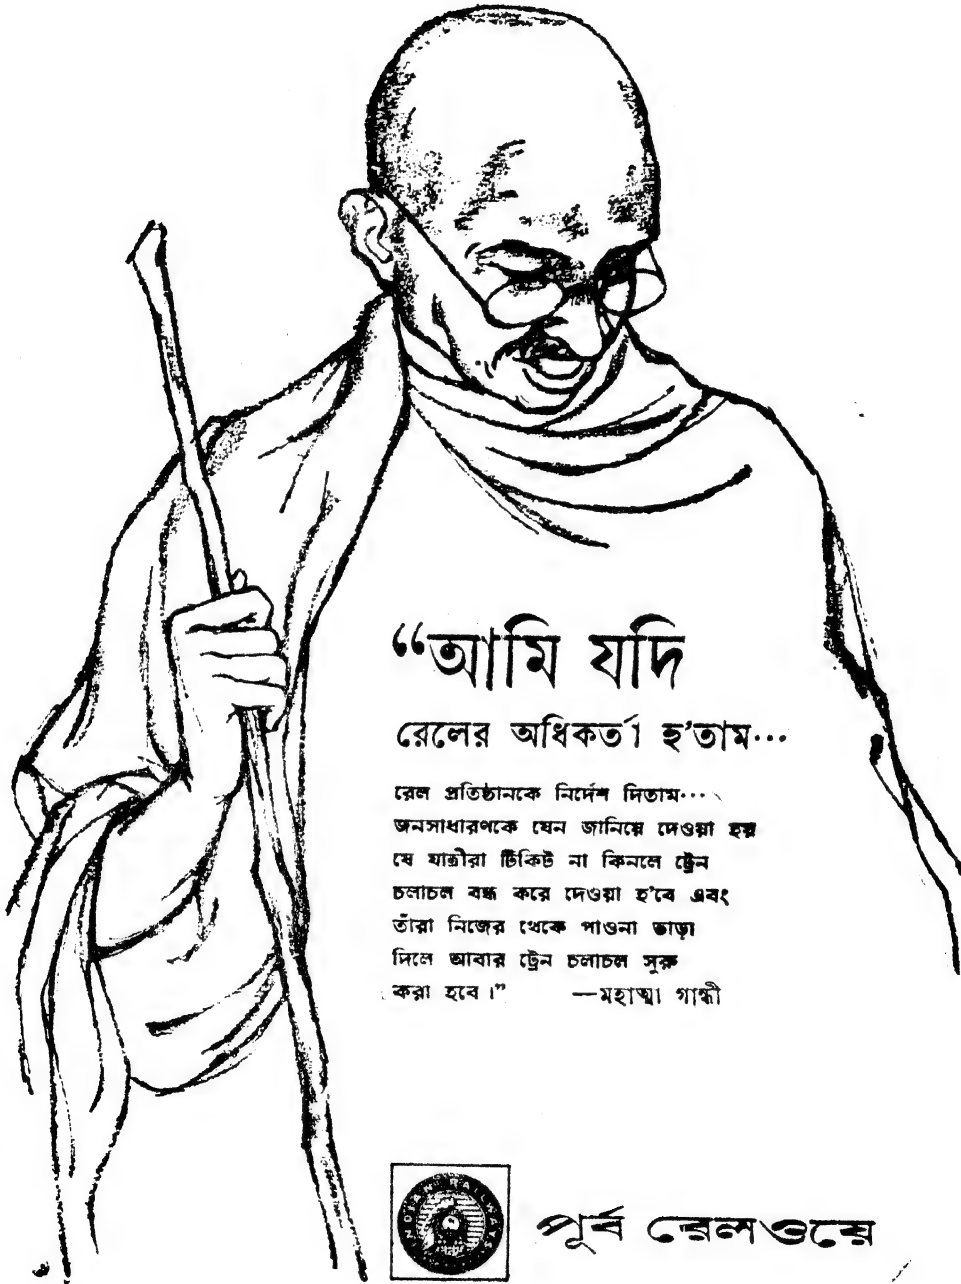 “আমি যদি
রেলের অধিকর্তা হ'তাম···
রেল প্রতিষ্ঠানকে নির্দেশ দিতাম···
জনসাধারণকে যেন জানিয়ে দেওয়া হয়
যে যাত্রীরা টিকিট না কিনলে ট্রেন
চলাচল বন্ধ করে দেওয়া হ'বে এবং
তাঁরা নিজের থেকে পাওনা ভাড়া
দিলে আবার ট্রেন চলাচল সুরু
করা হবে।” —মহাত্মা গান্ধী
INDIAN RAILWAYS
পূর্ব রেলওয়ে